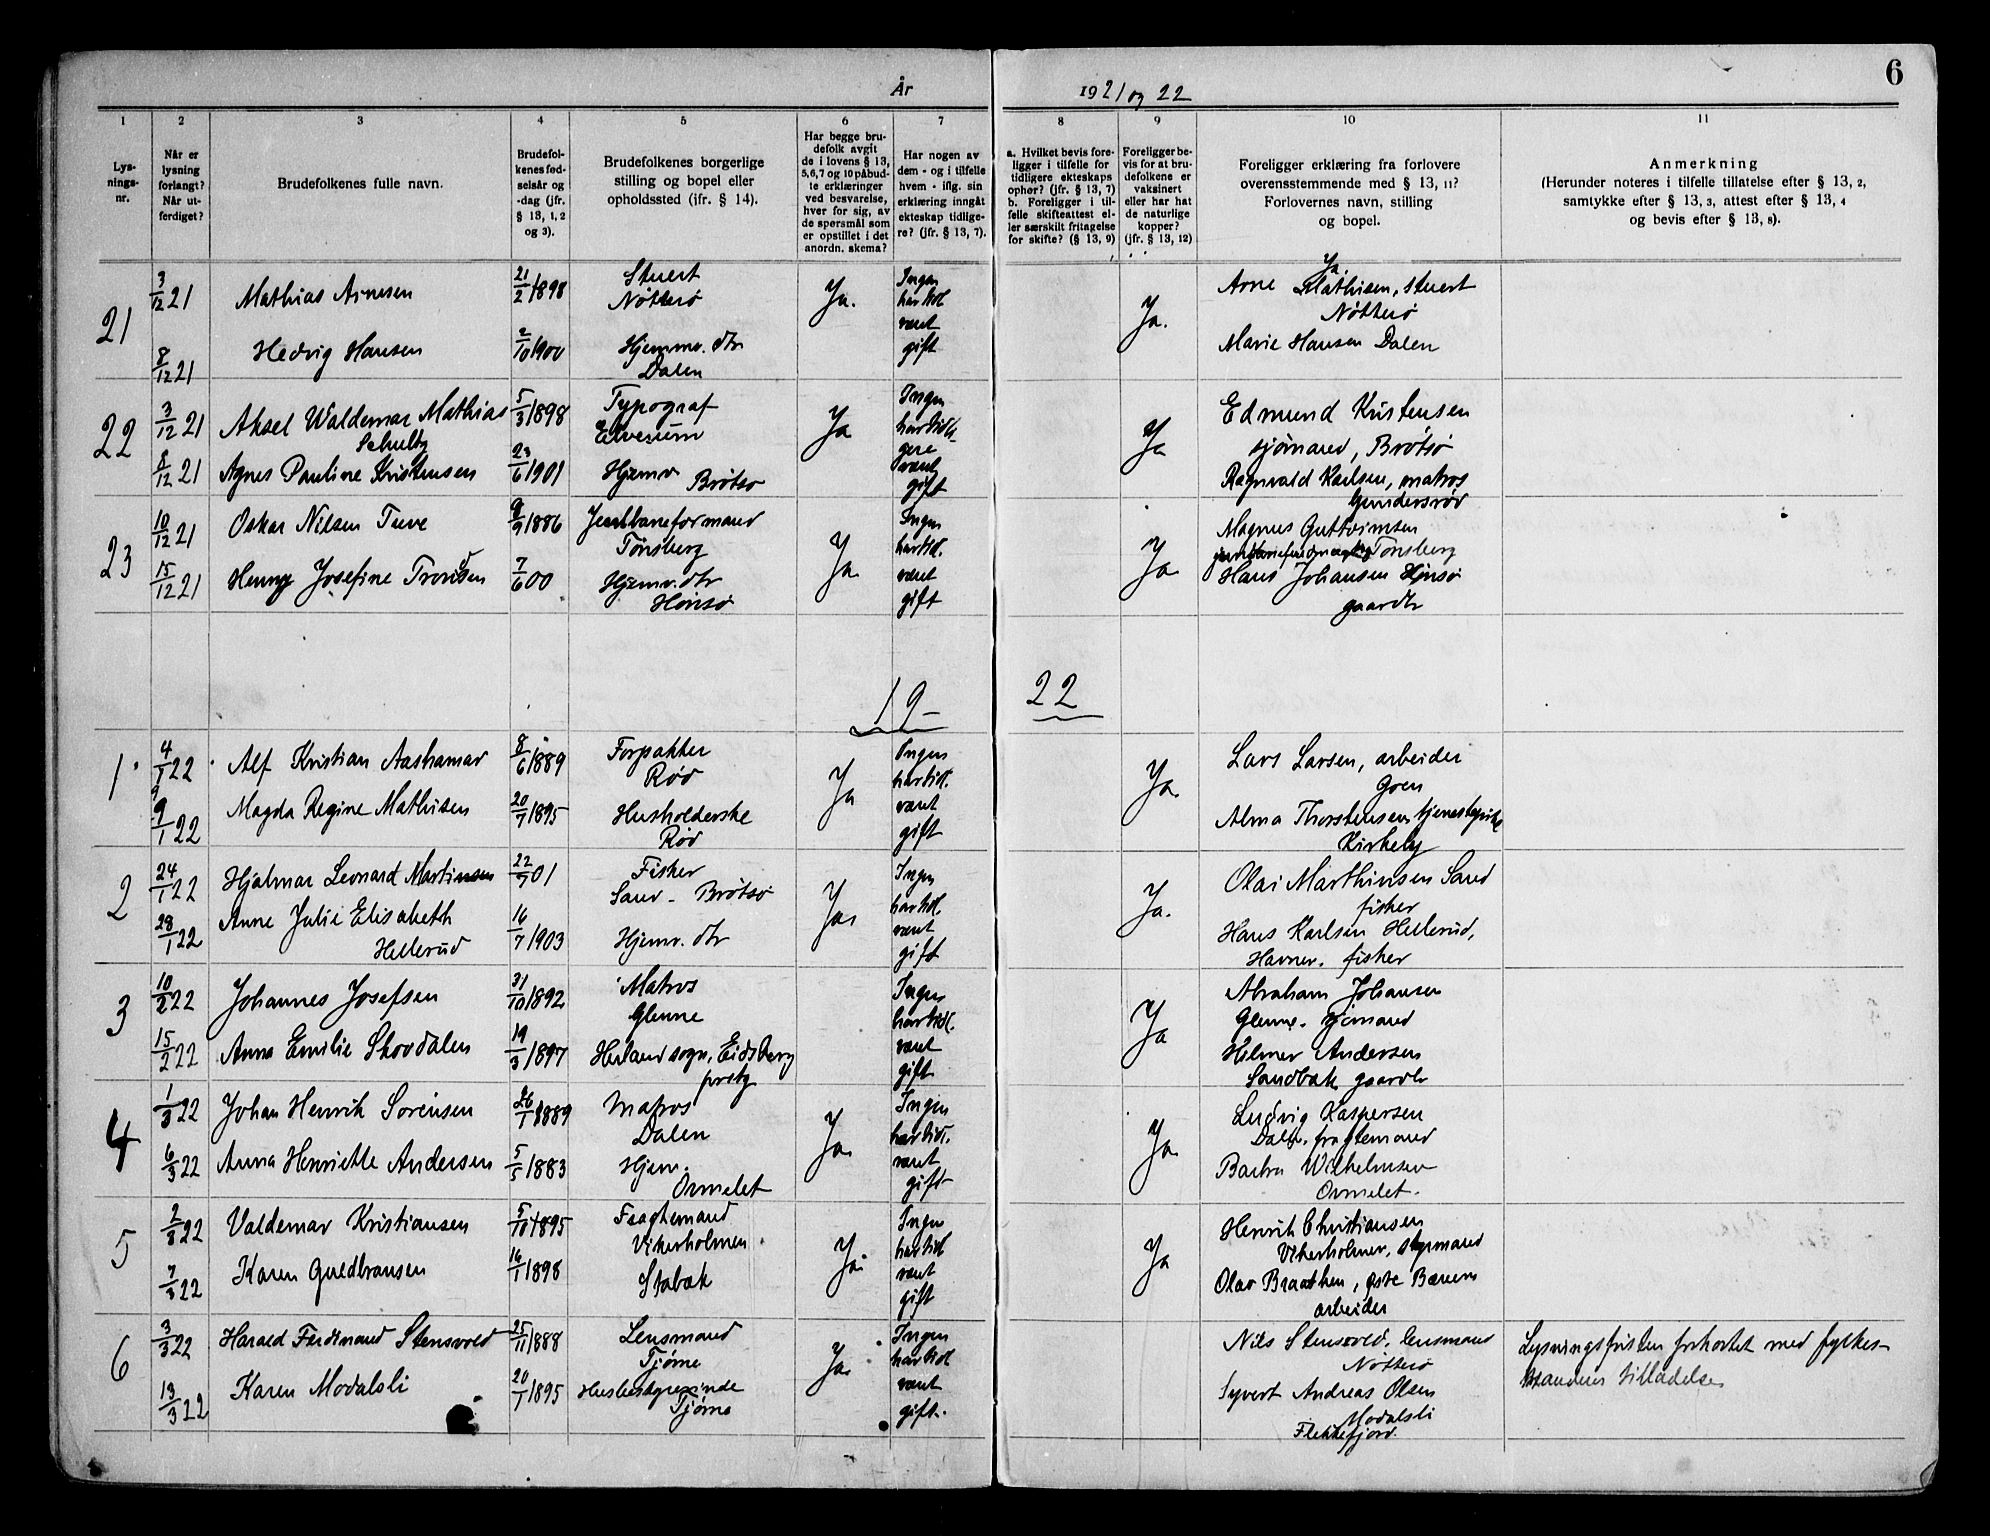 År 1921 og 22
6
1
Lys-
nings-
nr.
2
Når er
lysning
forlangt?
Når ut-
ferdiget?
3
Brudefolkenes fulle navn.
4
Brudefol-
kenes fød-
selsår og
-dag (jfr.
§ 13, 1, 2
og 3).
5
Brudefolkenes borgerlige
stilling og bopel eller
opholdssted (jfr. § 14).
6
Har begge bru-
defolk avgit
de i lovens § 13,
5, 6, 7 og 10 påbud-
te erklæringer
ved besvarelse,
hver for sig, av
de spørsmål som
er opstillet i det
anordn. skema?
7
Har nogen av
dem - og i tilfelle
hvem - iflg. sin
erklæring inngåt
ekteskap tidlige-
re? (jfr. § 13, 7).
8
a. Hvilket bevis fore-
ligger i tilfelle for
tidligere ekteskaps
ophør? (jfr. § 13, 7)
b. Foreligger i til-
felle skifteattest el-
ler særskilt fritagelse
for skifte? (§ 13, 9)
9
Foreligger be-
vis for at bru-
defolkene er
vaksinert
eller har hat
de naturlige
kopper?
(jfr. § 13, 12)
10
Foreligger erklæring fra forlovere
overensstemmende med § 13, 11?
Forlovernes navn, stilling
og bopel.
11
Anmerkning
(Herunder noteres i tilfelle tillatelse efter § 13, 2,
samtykke efter § 13, 3, attest efter § 13, 4
og bevis efter § 13, 8).
21
3/12 21
8/12 21
Mathias Arnesen
Hedvig Hansen
21/2 1898
2/10 1900
Stuert
Nøtterø
Hjemmv. dtr
Dalen
Ja.
Ingen
har tid
været
gift
Ja.
Ja.
Arne Mathisen, stuert
Nøtterø
Marie Hansen Dalen
22
3/12 21
8/12 21
Aksel Waldemar Mathias
Schultz
Agnes Pauline Kristensen
5/3 1898
23/6 1901
Typograf
Elverum
Hjemv.
Brøtsø
Ja
Ingen
har tidli-
gere
været
gift
Ja
Edmund Kristensen
sjømand, Brøtsø
Ragnvald Karlsen, matros
Gundersrød
23
10/12 21
15/12 21
Oskar Nilsen Tuve
Henny Josefine Tronsen
9/9 1886
7/6 00
Jernbaneformand
Tønsberg
Hjemv. dtr
Hønsø
Ja
Ingen
har tid.
været
gift
Ja
Magnus Guttormsen
Tønsberg
Hans Johansen Hønsø
gaardbr
19 22
1
4/1 22
9/1 22
Alf Kristian Aashamar
Magda Regine Mathisen
8/6 1889
20/7 1895
Forpakter
Rød
Husholderske
Rød
Ja
Ingen
har tid.
været
gift
Ja.
Lars Larsen, arbeider
Goen
Alma Thorstensen tjenestepike
Kirkeby
2
24/1 22
28/1 22
Hjalmar Leonard Martinsen
Anne Julie Elisabeth
Hellerud
22/7 01
16/7 1903
Fisker
Sand - Brøtsø
Hjemv. dtr
Ja.
Ingen
har tid.
været
gift
Ja.
Olai Marthinsen Sand
fisker
Hans Karlsen Hellerud,
Havner. fisker
3
10/2 22
15/2 22
Johannes Josefsen
Anna Emilie Skovdalen
31/10 1892
19/3 1897
Matros
Glenne
Herland sogn, Eidsberg
prestg
Ingen
har tid.
været
gift
Ja
Abraham Johansen
Glenne. sjømand
Hilmer Andersen
Sandbæk gaardbr
4
1/3 22
6/3 22
Johan Henrik Sørensen
Anna Henriette Andersen
26/1 1889
5/5 1883
Matros
Dalen
Hjem.
Ormelet
Ja.
Ingen
har tid.
været
gift
Ja.
Ludvig Kaspersen
Dalen. fragtemand
Barbra Wilhelmsen
Ormelet.
5
2/3 22
7/3 22
Valdemar Kristiansen
Karen Guldbransen
5/10 1895
16/1 1898
Fragtemand
Vikerholmen
Stabæk
Ja.
Ingen
har tid
været
gift
Ja
Henrik Christiansen
Vikerholmen, styrmand
Olav Braathen, østre Bærum
arbeider
6
3/3 22
13/3 22
Harald Ferdinand Stensvold
Karen Modalsli
25/11 1888
20/1 1895
Lensmand
Tjøme
Husbestyrerinde
Tjøme
Ja.
Ingen
har tid
været
gift.
Nils Stensvold, lensmand
Nøtterø
Syvert Andreas Olsen
Modalsli
Flekkefjord.
Lysningsfristen forkortet med fylkes-
mandens tilladelse